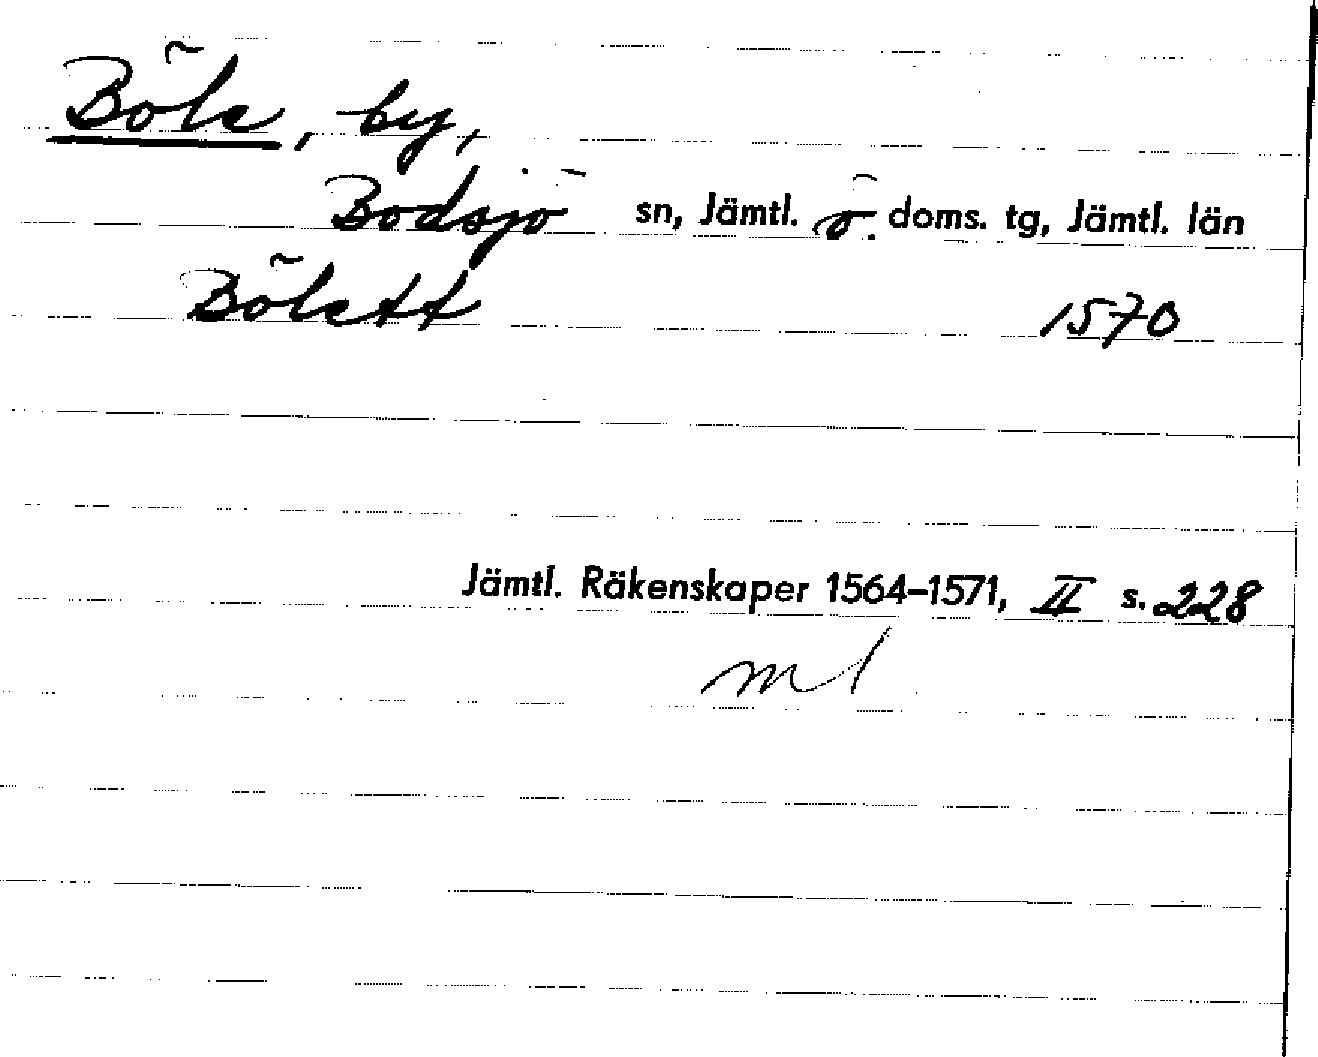 Böle, by,
Bodsjö sn, Jämtl. ö. doms. tg, Jämtl. län
Bölett 1570
Jämtl. Räkenskaper 1564–1571, II s. 228